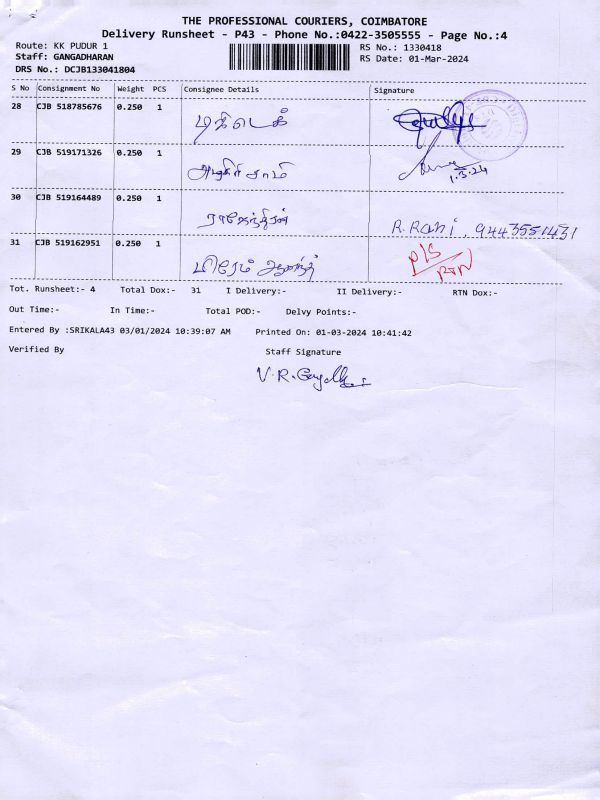 THE PROFESSIONAL COURIERS, COIMBATORE
Delivery Runsheet - P43 - Phone No.:0422-3505555 - Page No.:4
Route: KK PUDUR 1 RS No.: 1330418
Staff: GANGADHARAN RS Date: 01-Mar-2024
DRS No.: DCJB133041804
S No Consignment No Weight PCS Consignee Details Signature
28 CJB 518785676 0.250 1
29 CJB 519171326 0.250 1 1.3.24
30 CJB 519164489 0.250 1 ராஜேந்திரன் R.Rani, 9443551431
31 CJB 519162951 0.250 1 பிரேம் ஆனந்த்
Tot. Runsheet:- 4 Total Dox:- 31 I Delivery:- II Delivery:- RTN Dox:-
Out Time:- In Time:- Total POD:- Delvy Points:-
Entered By :SRIKALA43 03/01/2024 10:39:07 AM Printed On: 01-03-2024 10:41:42
Verified By Staff Signature